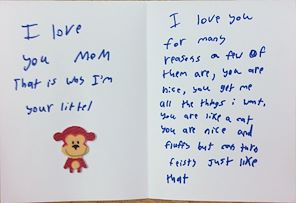 I love
you MOM
That is why I'm
your littel
I love you
for many
reasons a few of
them are, you are
nice, you get me
all the things i want,
you are like a cat
you are nice and
fluffy but can turn
feisty just like
that